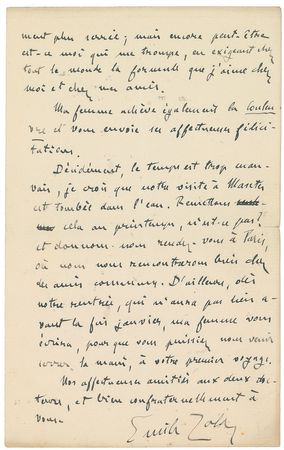 ment plus serrée; mais encore peut-être
est-ce moi qui me trompe, en exigeant chez
tout le monde la formule que j'aime chez
moi et chez mes amis.
Ma femme achève également la Couleu-
vre et vous envoie ses affectueuses félici-
tations.
Décidément, le temps est trop mau-
vais, je crois que notre visite à
est tombée dans l'eau. Remettons
cela au printemps, n'est-ce pas?
et donnons-nous rendez-vous à Paris,
où nous nous rencontrerons bien chez
des amis communs. D'ailleurs, dès
notre rentrée, qui n'aura pas lieu a-
vant la fin janvier, ma femme vous
écrira, pour que vous puissiez nous venir
serrer la main, à votre premier voyage.
Nos affectueuses amitiés aux deux
et bien confraternellement à
vous.
Emile Zola